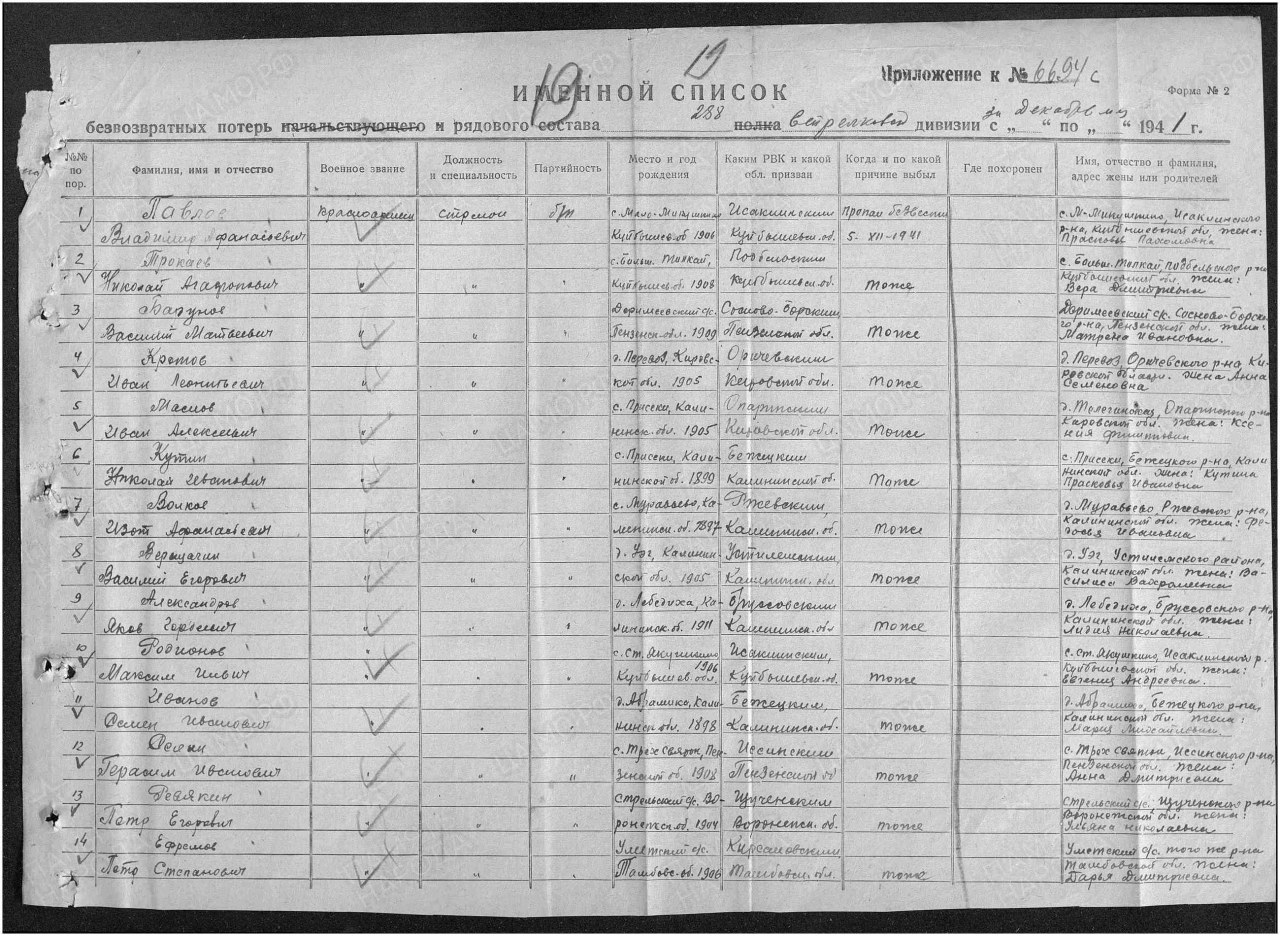 19
19
Приложение к № 6694с
Форма № 2
ИМЕННОЙ СПИСОК
безвозвратных потерь начальствующего и рядового состава 288 полка Стрелковой дивизии за декабрь м-ц с „ “ по „ “ 1941 г.
№№ по пор. Фамилия, имя и отчество Военное звание Должность и специальность Партийность Место и год рождения Каким РВК и какой обл. призван Когда и по какой причине выбыл Где похоронен Имя, отчество и фамилия, адрес жены или родителей
1 Павлов Красноармеец стрелок б/п с. Мало-Микушкино Исаклинским Пропал безвести с. М-Микушкино, Исаклинского
Владимир Афанасьевич Куйбышев. об 1906 Куйбышевск. об. 5-XII-1941 р-на, Куйбышевской обл. жена:
Прасковья Пахомовна
2 Трокаев с. Больш. Толкай, Подбельским с. Больш. Толкай Подбельского р-на
Николай Агафонович " " " Куйбышев. об. 1908 Куйбышевск. об. тоже Куйбышевской обл. жена:
Вера Дмитриевна
3 Василий Матвеевич " " " Пензенск. обл. 1909 Сосново-Борским Пензенской обл. тоже с/с. Сосново-Борско-
го р-на, Пензенской обл. жена:
Матрена Ивановна.
4 Кротов д. Перевоз, Кировс- Оричевским д. Перевоз Оричевского р-на, Ки-
Иван Леонтьевич " " " кой обл. 1905 Кировской обл. тоже ровской области. жена Анна
Семеновна
5 Маслов с. Присеки, Кали- Опаринским Опаринского р-на
Иван Алексеевич " " " нинск. об. 1905 Кировской обл. тоже Кировской обл. жена: Ксе-
ния Филипповна.
6 Кутин с. Присеки, Кали- Бежецким с. Присеки, Бежецкого р-на, Кали
Николай Иванович " " " нинской об. 1899 Калининской об. тоже нинской обл. жена: Кутина
Прасковья Ивановна
7 Волков с. Муравьево, Ка- Ржевским, д. Муравьево Ржевского р-на,
Изот " " " лининск. об. 1897 Калининск. об. тоже Калининской обл. жена: Фе-
досья Ивановна
8 Верещагин д. Уэг, Калинин- д. Уэг,
Василий Егорович " " " ской обл. 1905 Калининск. обл тоже Калининской обл. жена: Ва-
силиса
9 Александров д. Лебедиха, Ка- Бруссовским д. Лебедиха, Бруссовского р-на,
Яков " " " лининск. об. 1911 Калининск. обл тоже Калининской обл. жена:
Лидия Николаевна.
10 Родионов с. ст. Якушкино Исаклинским, с. ст. Якушкино, Исаклинской р.
Максим Ильич " " " Куйбышев. обл. 1906 Куйбышевск. об. тоже Куйбышевской обл. жена:
Евгения Андреевна.
11 Иванов д. Абрамиха, Кали- Бежецким, д. Абрамиха, Бежецкого р-на,
Семен Иванович " " " нинск обл. 1898 Калининск. об. тоже Калининской обл. жена:
Мария Михайловна.
12 с. Трех святск, Пен- Иссинским с. Трех святск, Иссинского р-на,
Герасим Иванович " " " зенской об. 1908 Пензенской об тоже Пензенской обл. жена:
Анна Дмитриевна
13 Ревякин Стрельский с/с. Во- Щученским Стрельский с/с. Щученского р-на
Петр Егорович " " " ронежск. об. 1904 Воронежск. об. тоже Воронежской обл. жена:
Ульяна Николаевна
14 Ефремов Уметский с/с. Кирсановским Уметский с/с. того же р-на
Петр Степанович " " " Тамбовс. об. 1906 Тамбовск. обл. тоже Тамбовской обл. жена:
Дарья Дмитриевна.